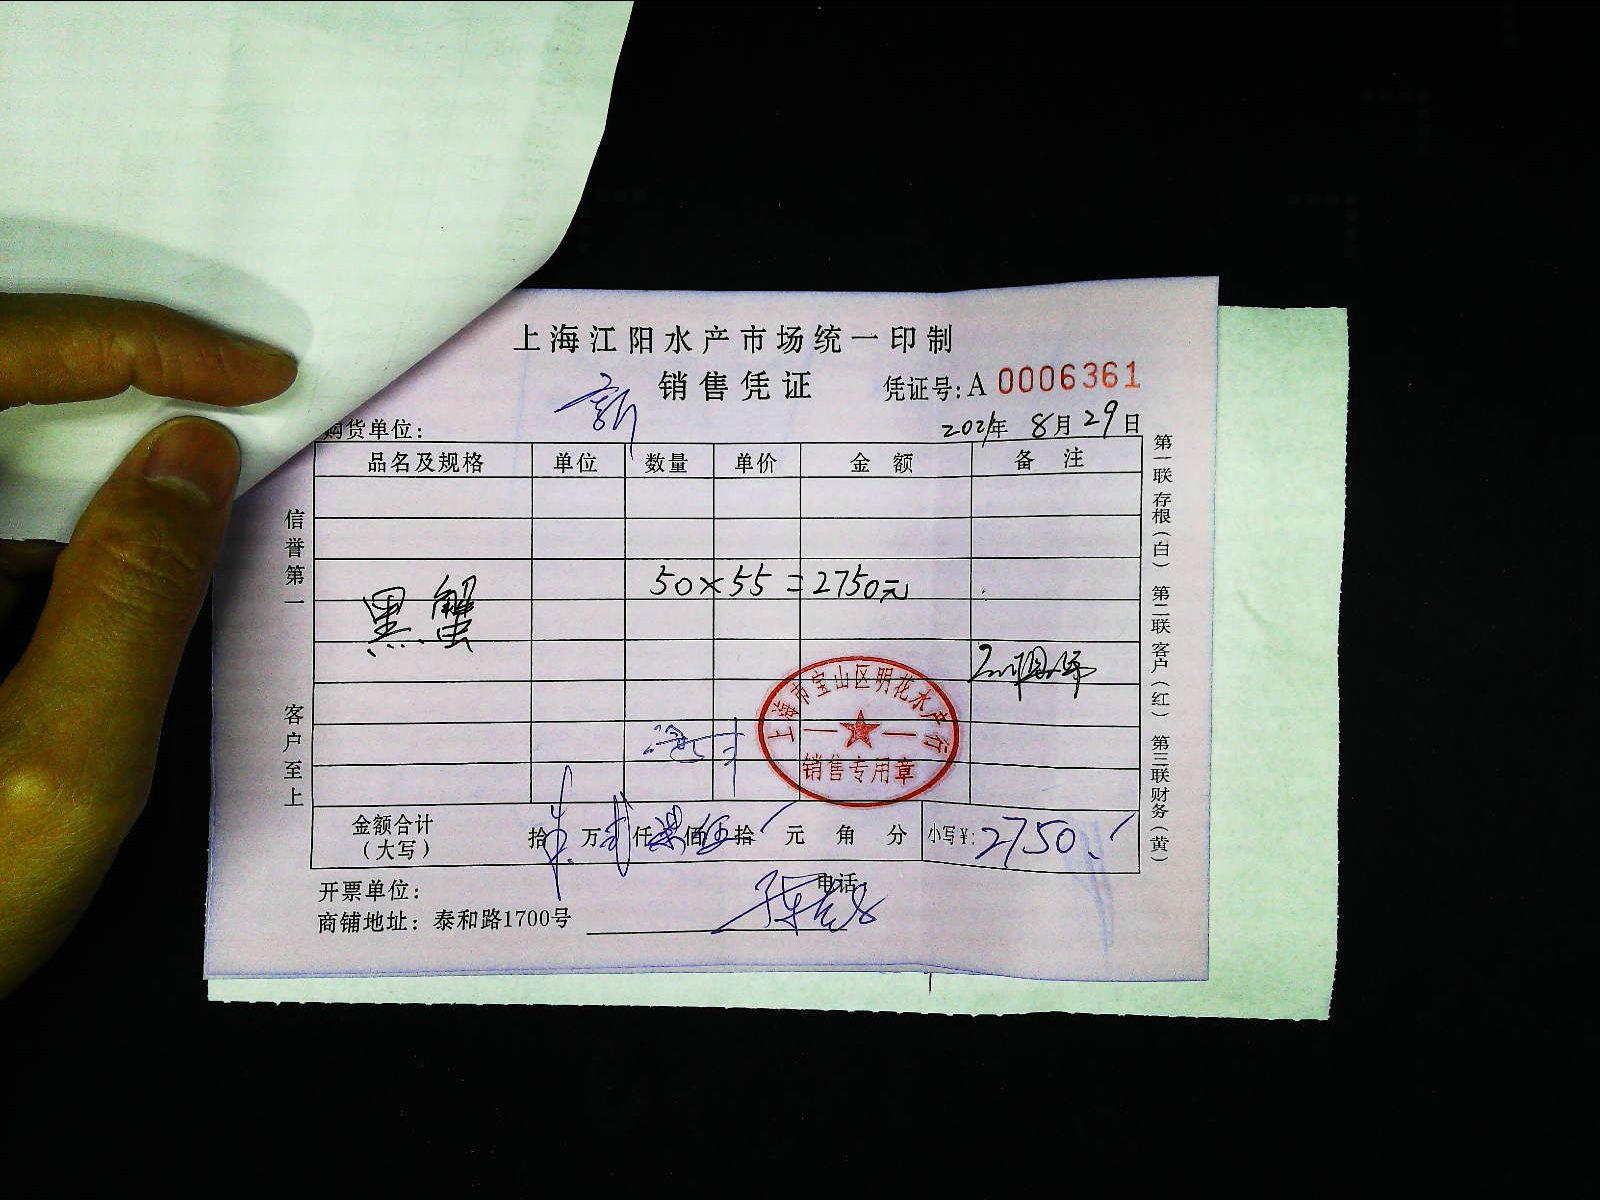 上海江阳水产市场统一印制
销售凭证
凭证号:A 0006361
购货单位:
2021年 8月29日
品名及规格 单位 数量 单价 金额 备注
黑蟹 50×55=2750元
上海市宝山区明花水产行
销售专用章
金额合计(大写) 拾 万 仟 佰 拾 元 角 分 小写¥:2750.
开票单位: 电话:
商铺地址:泰和路1700号
信誉第一
客户至上
第一联存根(白) 第二联客户(红) 第三联财务(黄)